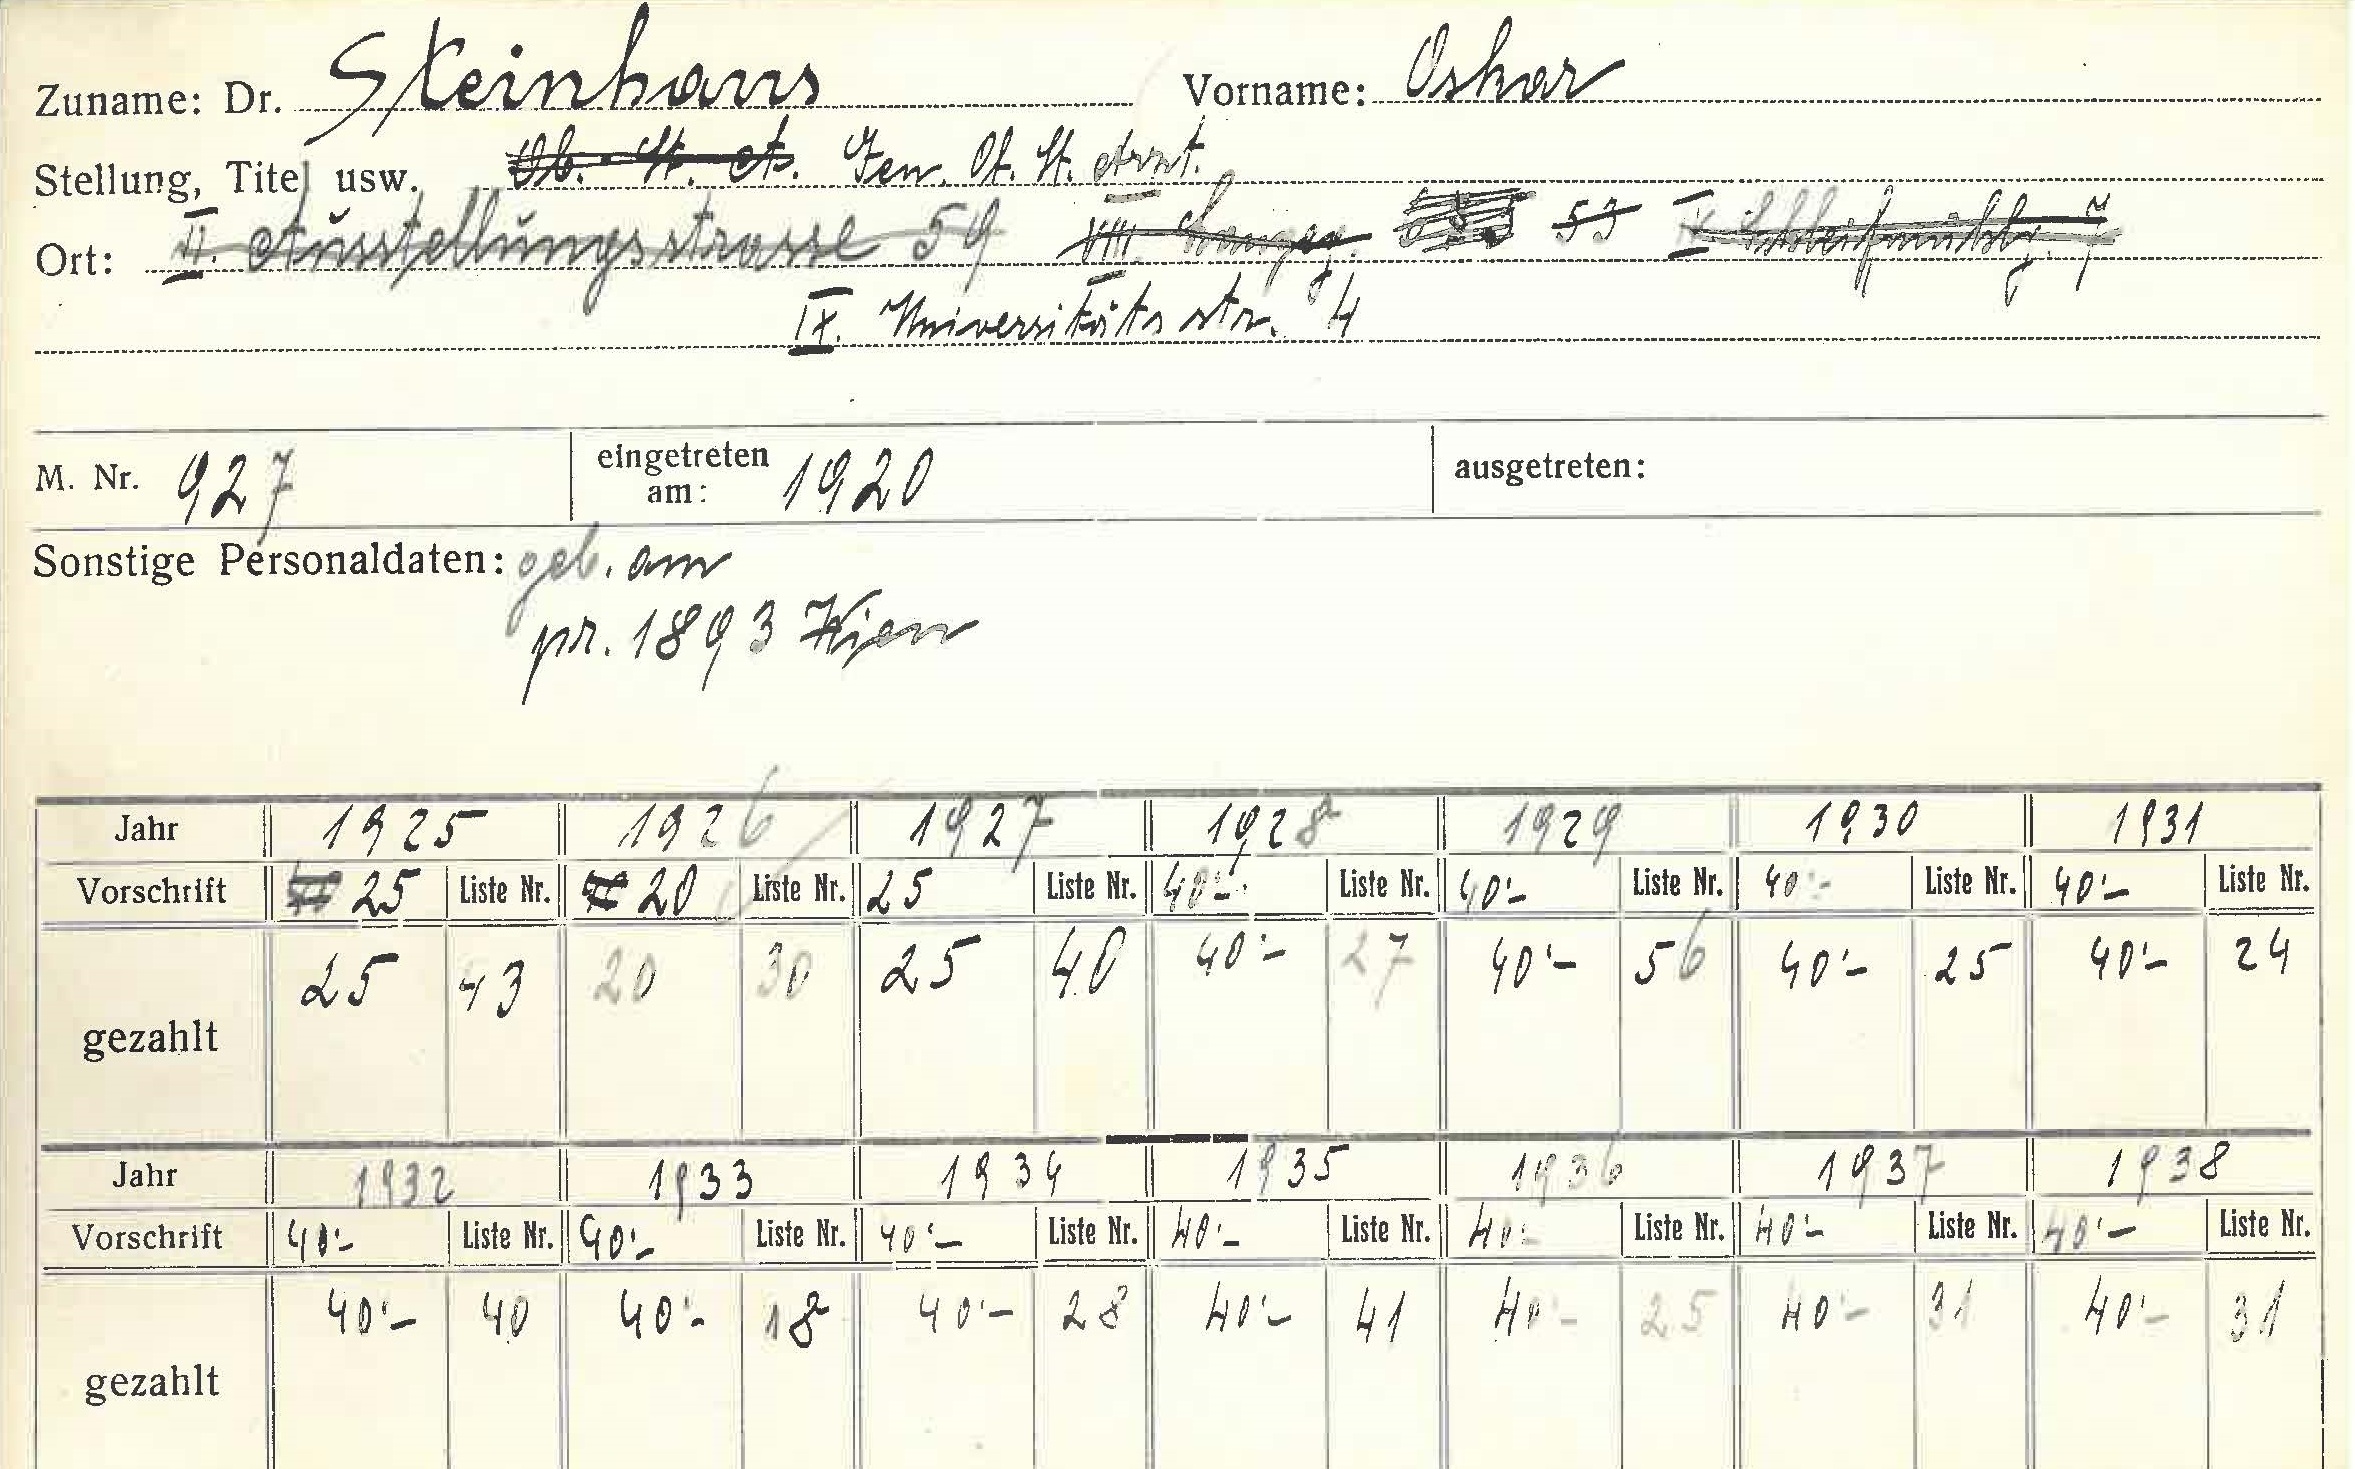 Zuname: Dr. Steinhaus Vorname: Oskar
Stellung, Titel usw. Ob. St. A. Gen. Ob. St. Arzt.
Ort: II. Ausstellungsstrasse 59 VIII. Langeg. 53 IV. Schleifmühlg. 7
IX. Universitäts str. 4
M. Nr. 927 eingetreten am: 1920 ausgetreten:
Sonstige Personaldaten: geb. am
pr. 1893 Wien
Jahr 1925 1926 1927 1928 1929 1930 1931
Vorschrift 25 Liste Nr. 20 Liste Nr. 25 Liste Nr. 40'- Liste Nr. 40'- Liste Nr. 40'- Liste Nr. 40'- Liste Nr.
gezahlt 25 43 20 30 25 40 40'- 27 40'- 56 40'- 25 40'- 24
Jahr 1932 1933 1934 1935 1936 1937 1938
Vorschrift 40'- Liste Nr. 40'- Liste Nr. 40'- Liste Nr. 40'- Liste Nr. 40'- Liste Nr. 40'- Liste Nr. 40'- Liste Nr.
gezahlt 40'- 40 40'- 18 40'- 28 40'- 41 40'- 25 40'- 31 40'- 31